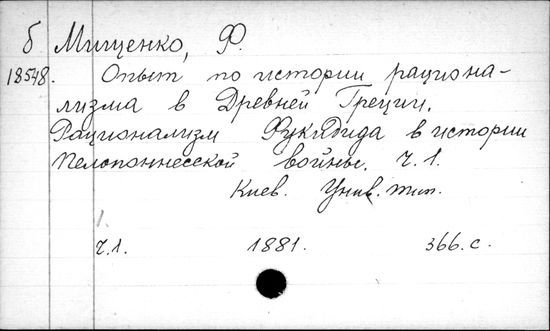 б Мищенко, Ф.
18548. Опыт по истории рациона-
лизма в Древней Греции.
Рационализм Фукидида в истории
Пелопоннесской войны. Ч. 1.
Киев. Унив. тип.
1.
Ч. 1. 1881. 366. с.